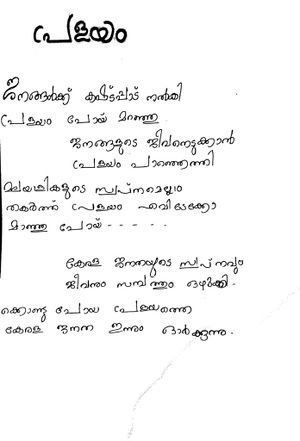 പ്രളയം
ജനങ്ങൾക്ക് കഷ്ടപ്പാട് നൽകി
പ്രളയം പോയ് മറഞ്ഞു.
ജനങ്ങളുടെ ജീവനെടുക്കാൻ
പ്രളയം പാഞ്ഞെത്തി
മലയാളികളുടെ സ്വപ്നമെല്ലാം
തകർത്ത് പ്രളയം എവിടേക്കോ
മാഞ്ഞു പോയ് - - - - -
കേരള ജനതയുടെ സ്വപ്നവും
ജീവനും സമ്പത്തും ഒഴുക്കി
ക്കൊണ്ടു പോയ പ്രളയത്തെ
കേരള ജനത ഇന്നും ഓർക്കുന്നു.